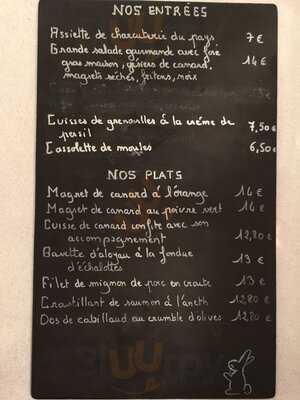 NOS ENTRÉES
Assiette de charcuterie du pays 7€
Grande salade gourmande avec foie
gras maison, gésiers de canard, 14€
magrets séchés, fritons, noix
Cuisses de grenouilles à la crème de
persil 7,50€
Cassolette de moules 6,50€
NOS PLATS
Magret de canard à l'orange 14€
Magret de canard au poivre vert 14€
Cuisse de canard confite avec son
accompagnement 12,80€
Bavette d'aloyau à la fondue
d'échalottes 13€
Filet de mignon de porc en croute 13€
Croustillant de saumon à l'aneth 12.80
Dos de cabillaud au crumble d'olives 12.80